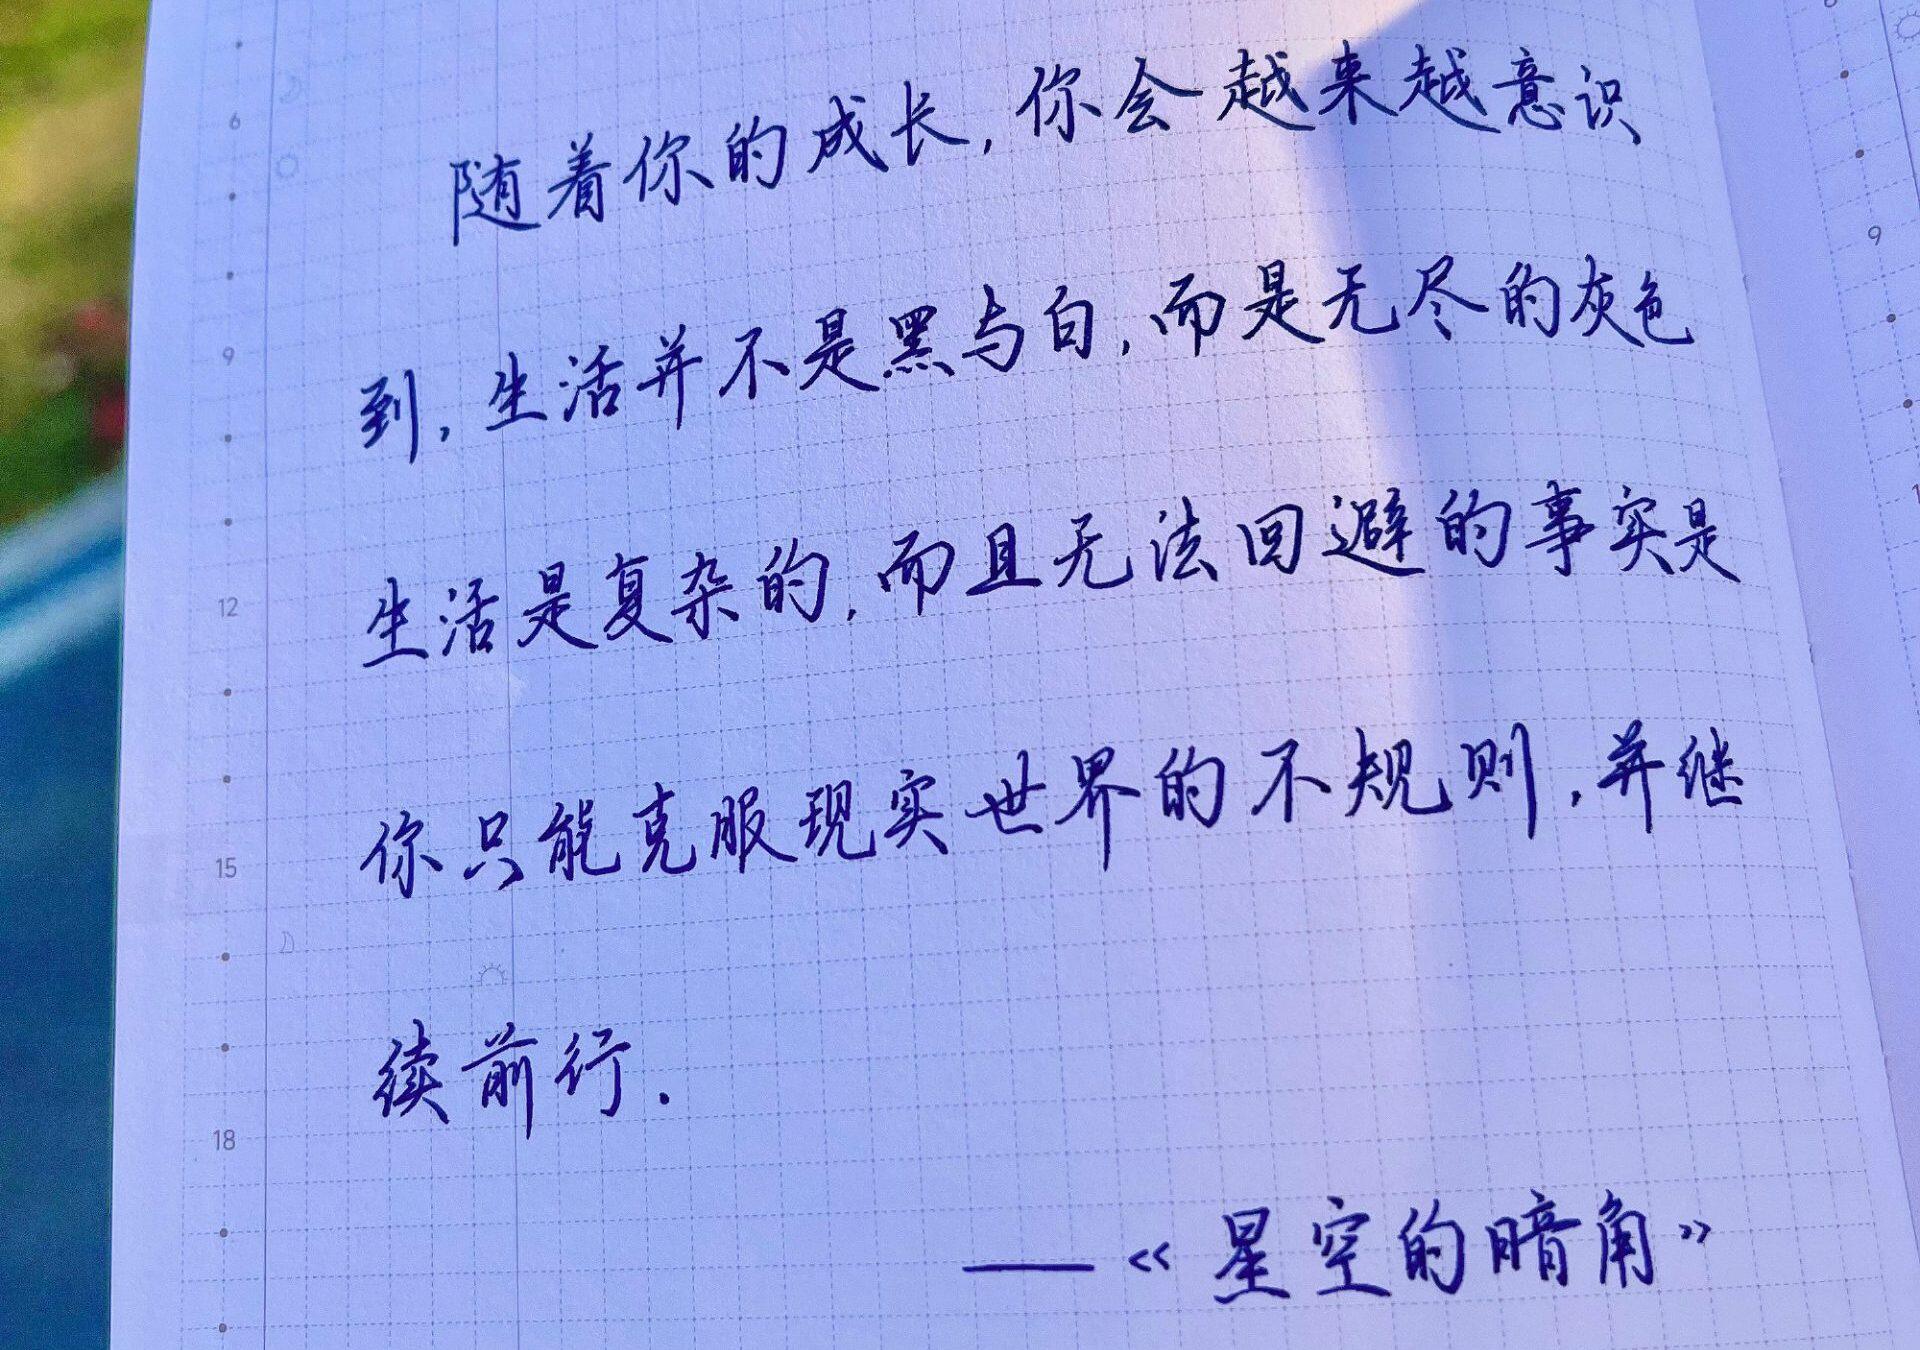 随着你的成长,你会越来越意识
到,生活并不是黑与白,而是无尽的灰色
生活是复杂的,而且无法回避的事实是
你只能克服现实世界的不规则,并继
续前行.
——《星空的暗角》
6
9
12
15
18
9